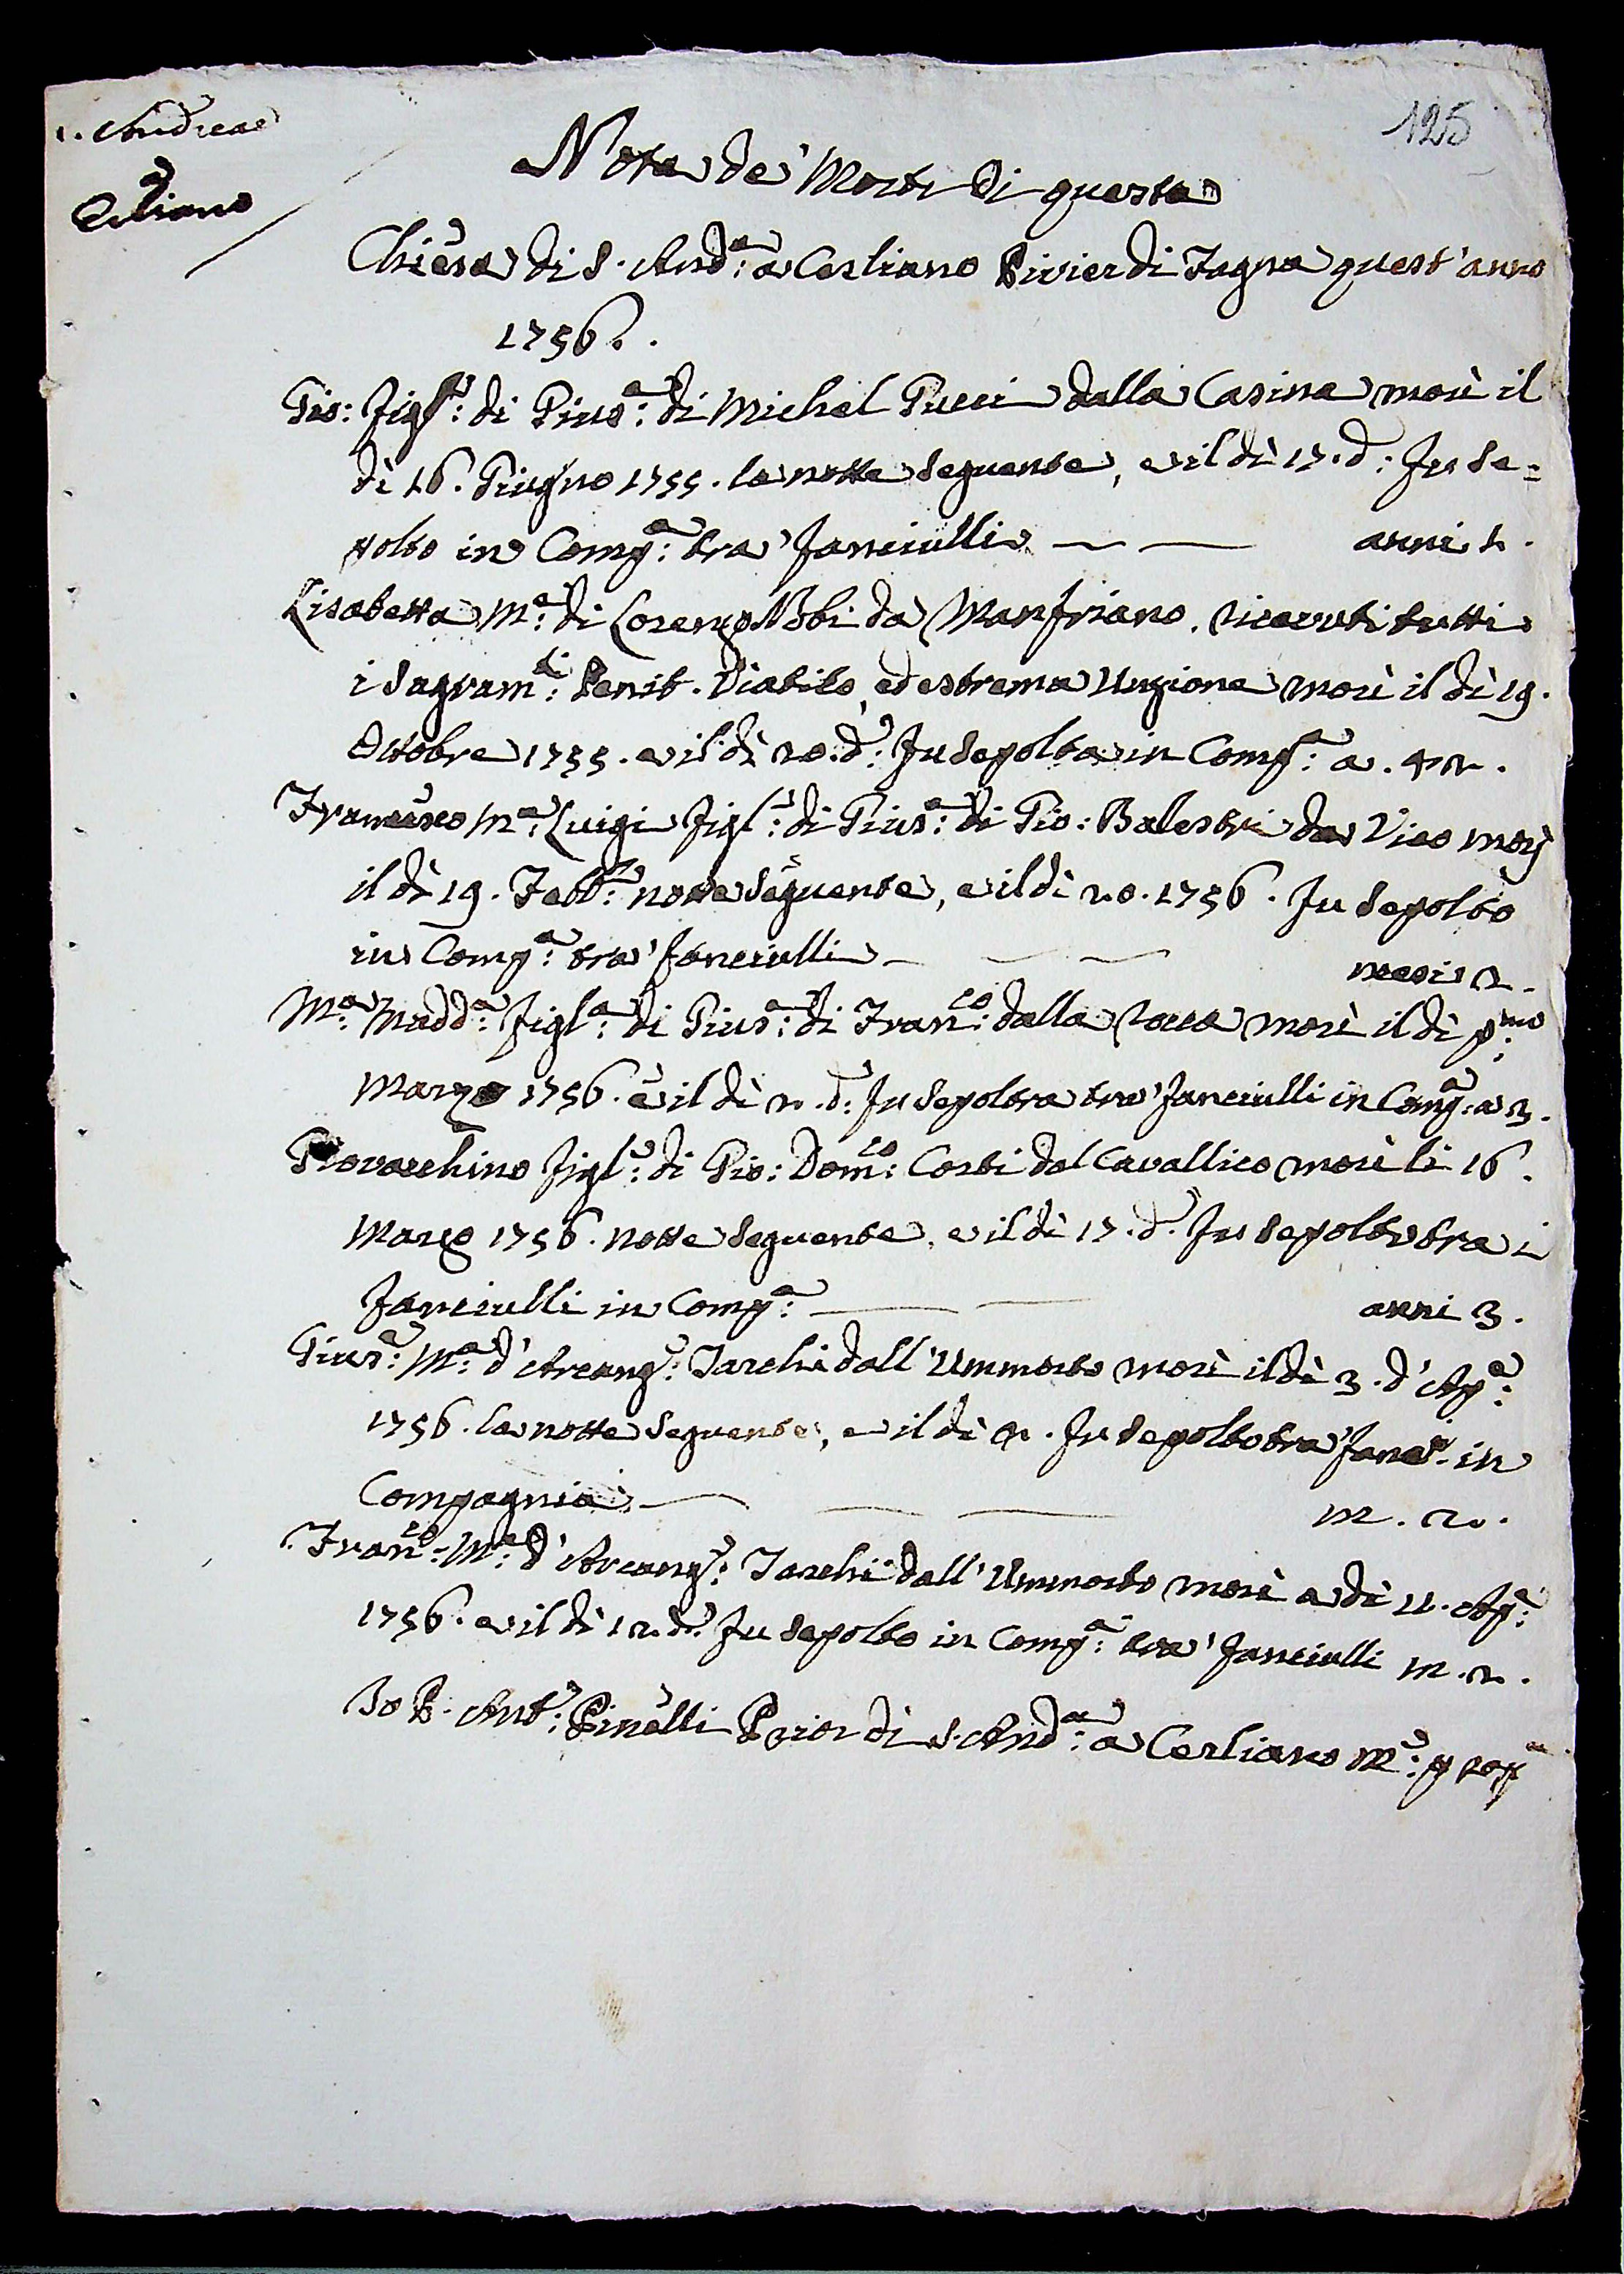 125
S. Andreae
a
Cerliano
Nota de' Morti di questa
Chiesa di S. And.a: a Cerliano Pivier di Fagna quest'anno
1756.
Gio: Figl.o: di Gius.e: di Michel Pucci dalla Casina morì il
dì 16. Giugno 1755. la notte seguente, e il dì 17. d.o: fu se=
polto in Comp.a: tra' fanciulli — — anni 1.
Lisabetta M.a: di Lorenzo Nobi da Manfriano, ricevuti tutti
i Sagram.ti: Penit. Viatico, ed estrema Unzione morì il dì 19.
Ottobre 1755. e il dì 20. d.o: fu sepolta in Comp.a: a. 42.
Francesco M.a: Luigi Figl.o: di Gius.e: di Gio: Balestri da Vico morì
il dì 19. Febb.o: notte seguente, e il dì 20. 1756. fu sepolto
in Comp.a: tra' fanciulli — — — mesi 2.
M.a: Madd.a: Figl.a: di Gius.e: di Fran.co: dalla Rocca morì il dì p.mo:
Marzo 1756. e il dì 2. d.o: fu sepolta tra' fanciulli in Comp.a: a 3.
Giovacchino Figl.o: di Gio: Dom.co: Corti dal Cavallico morì li 16.
Marzo 1756. notte seguente, e il dì 17. d.o. fu sepolto tra i
fanciulli in Comp.a: — — anni 3.
Gius.e: M.a: d'Arcang.o: Tarchi dall'Ummorto morì il dì 3. d'Ap.e:
1756. la notte seguente, e il dì 4. fu sepolto tra' fanc.i in
Compagnia — — — m. 2.
Fran.co: M.a: d'Arcang.o: Tarchi dall'Ummorto morì a dì 11. Ap.e:
1756. e il dì 12. d.o. fu sepolto in Comp.a: tra' fanciulli m. 2.
Io P. Ant.o: Pinelli Prior di S. And.a: a Cerliano m.o: prop.a